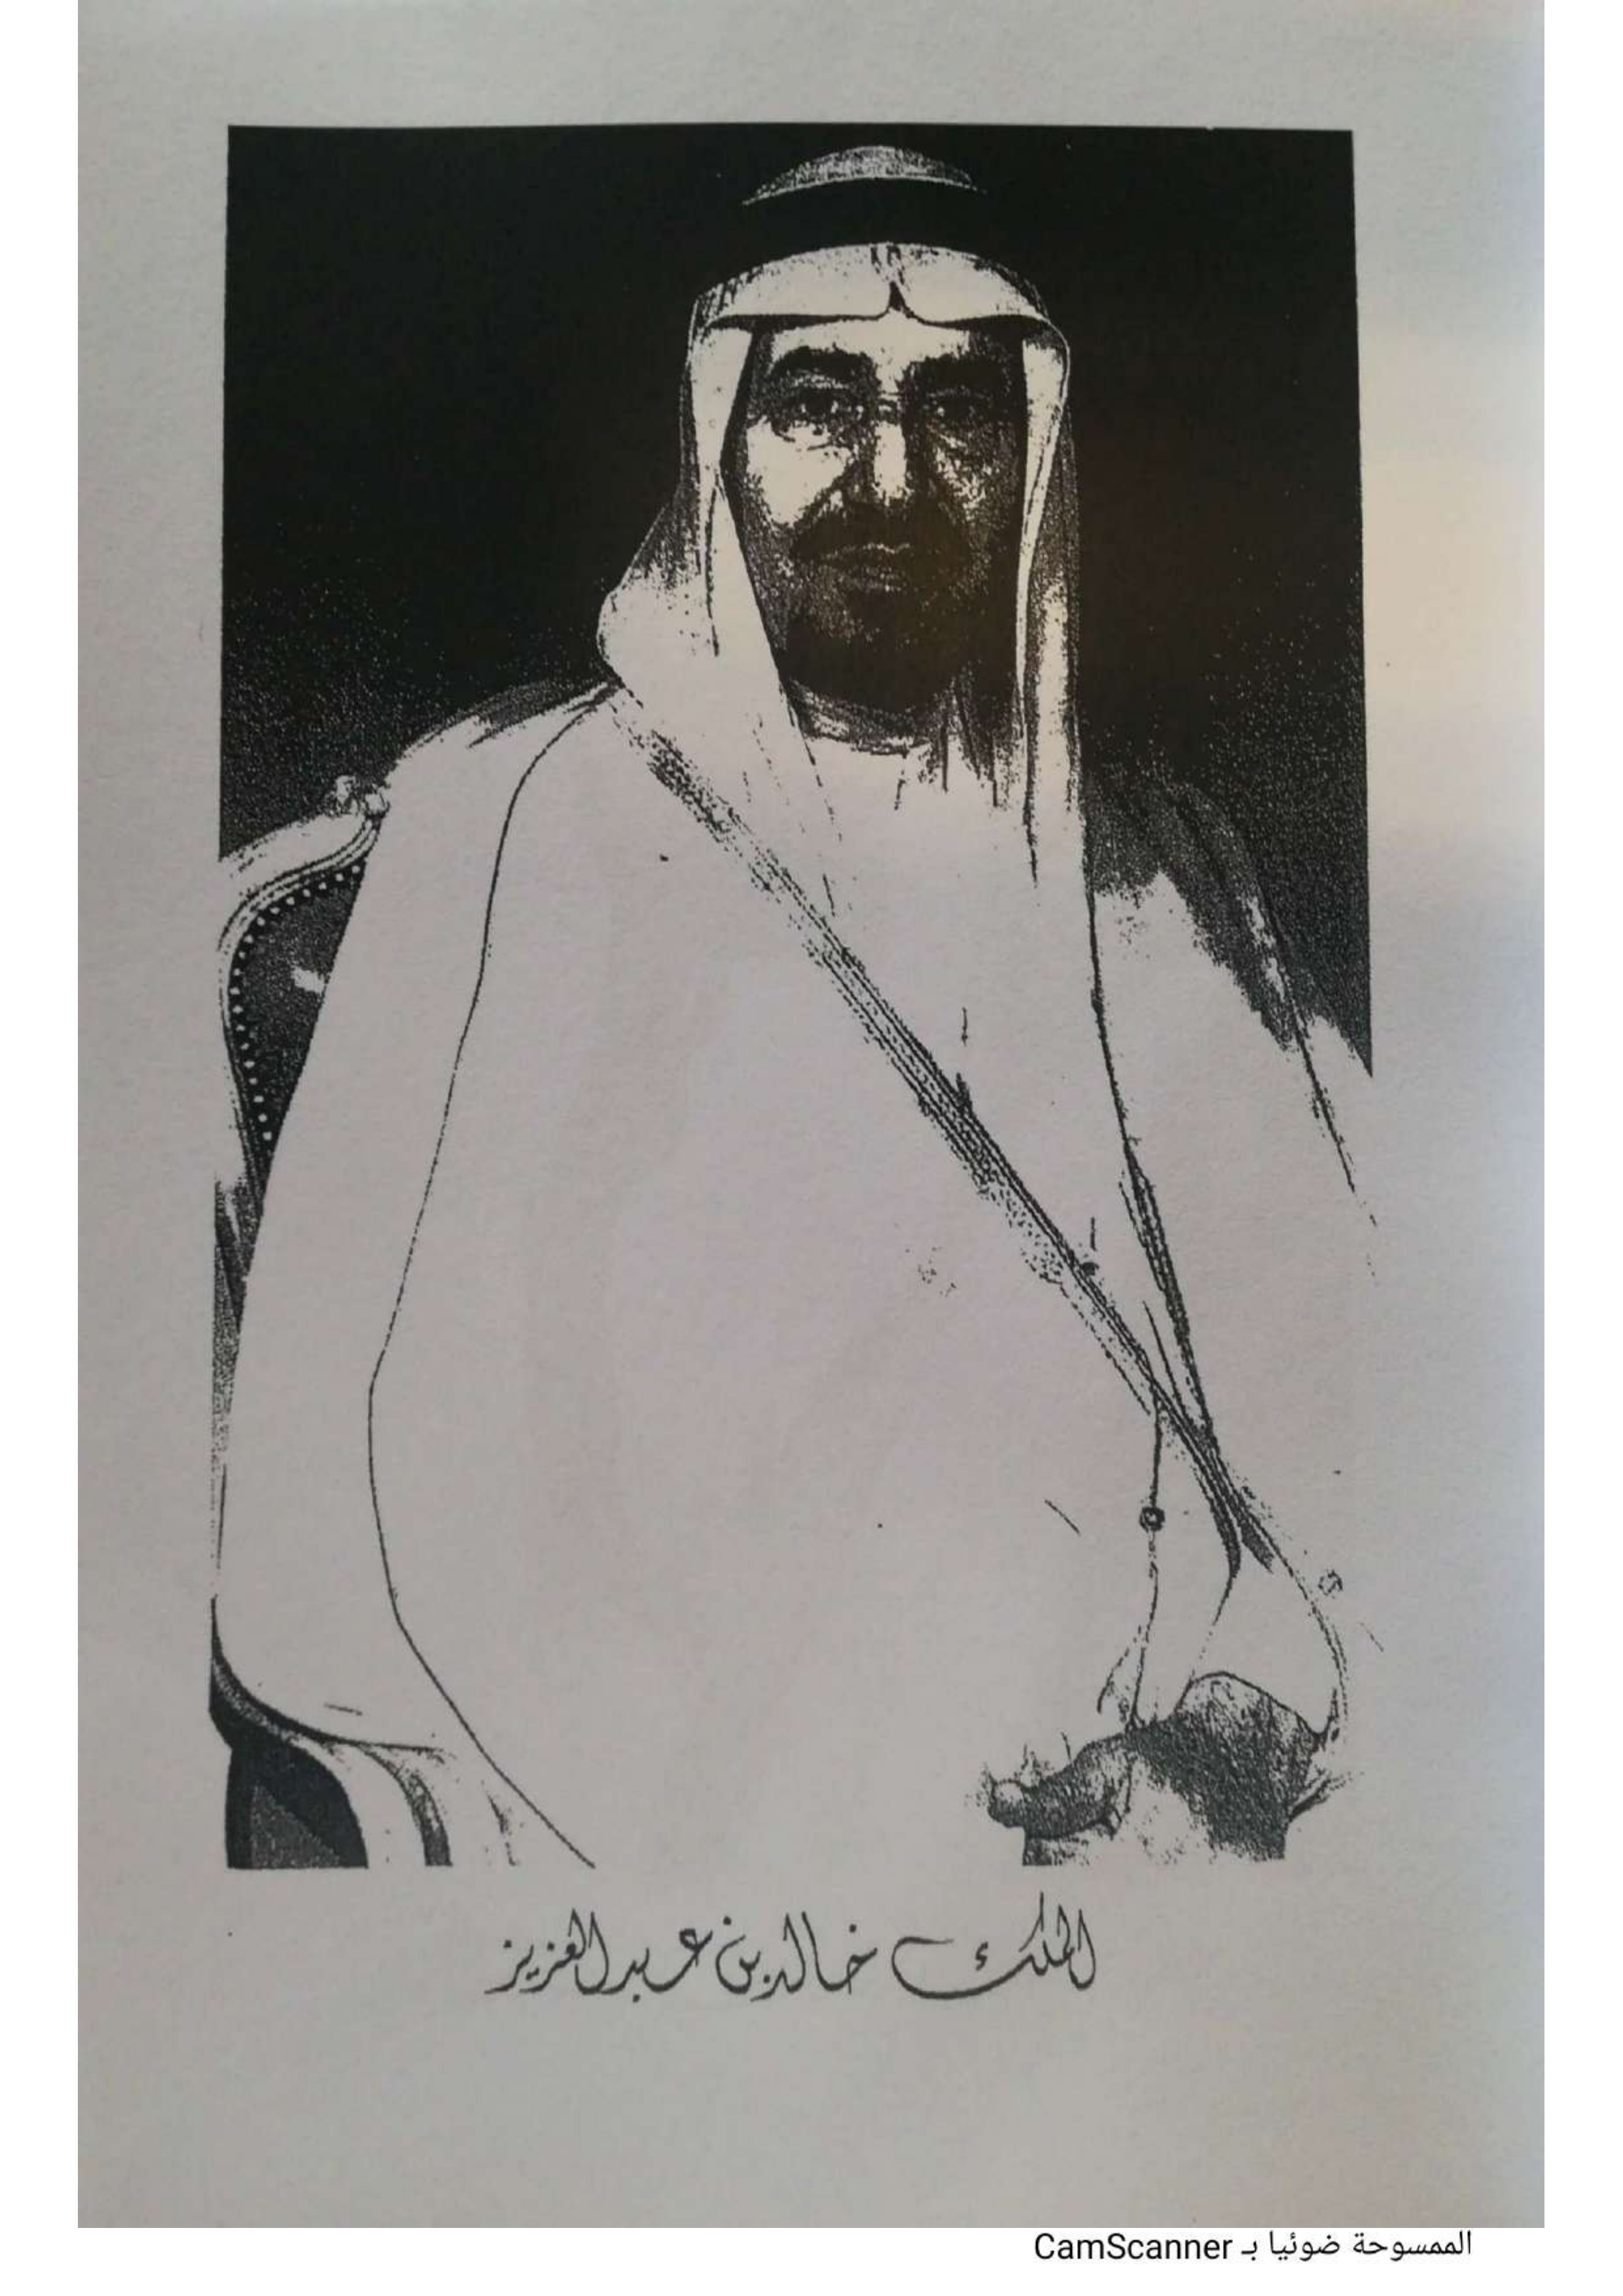 الملك خالد بن عبد العزيز
الممسوحة ضوئيا بـ CamScanner